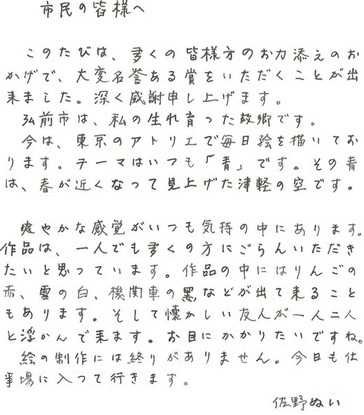 市民の皆様へ
このたびは、多くの皆様方のお力添えのお
かげで、大変名誉ある賞をいただくことが出
来ました。深く感謝申し上げます。
弘前市は、私の生れ育った故郷です。
今は、東京のアトリエで毎日絵を描いてお
ります。テーマはいつも「青」です。その青
は、春が近くなって見上げた津軽の空です。
爽やかな感覚がいつも気持の中にあります。
作品は、一人でも多くの方にごらんいただき
たいと思っています。作品の中にはりんごの
赤、雪の白、機関車の黒などが出て来ること
もあります。そして懐かしい友人が一人二人
と浮かんで来ます。お目にかかりたいですね。
絵の制作には終りがありません。今日も仕
事場に入って行きます。
佐野ぬい